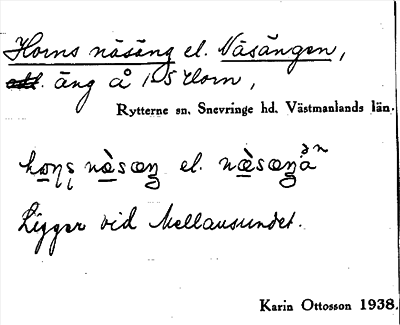 Horns näsäng el. Näsängen,
äng å 1 S Horn,
Rytterne sn. Snevringe hd. Västmanlands län.
el.
Ligger vid Mellansundet.
Karin Ottosson 1938.